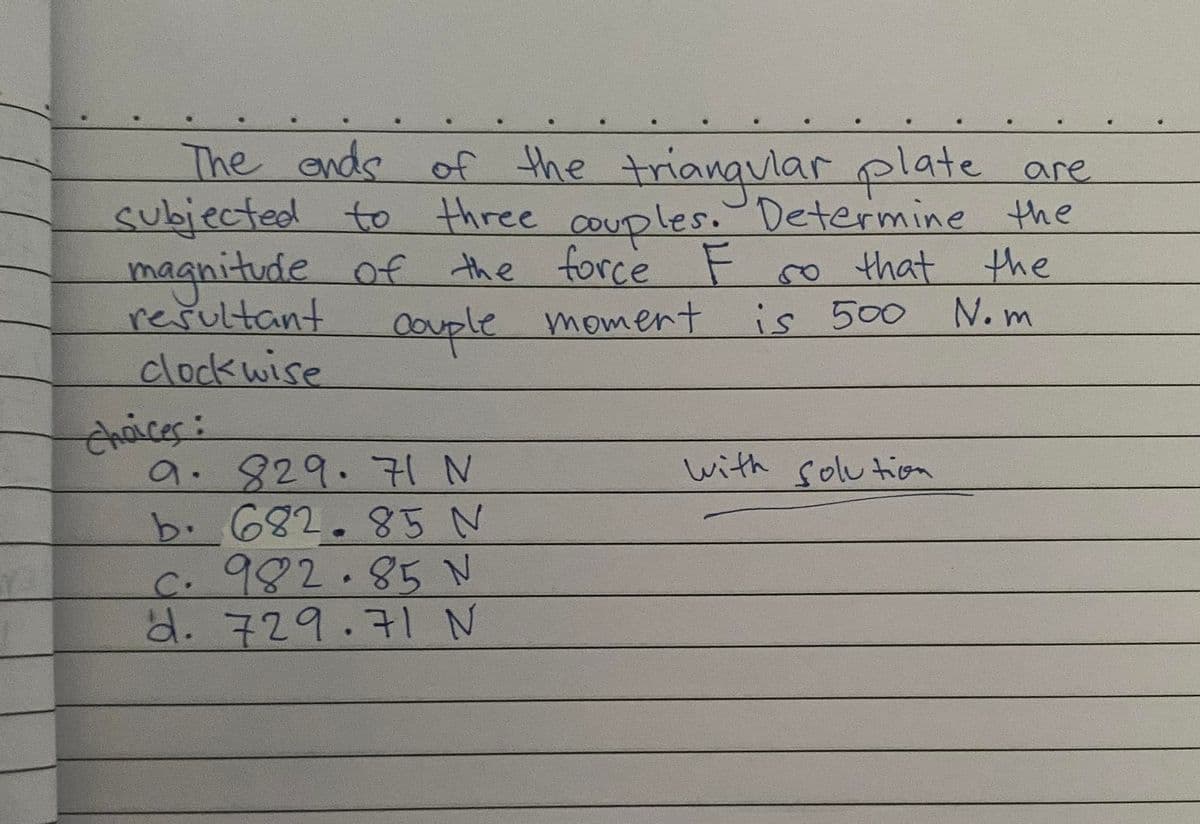 The ends of the triangular plate are
subjected to three couples. Determine the
magnitude of the force F so that the
resultant couple moment is 500 N.m
clockwise
choices:
a. 829.71 N
with solution
b. 682.85 N
c. 982.85 N
d. 729.71 N